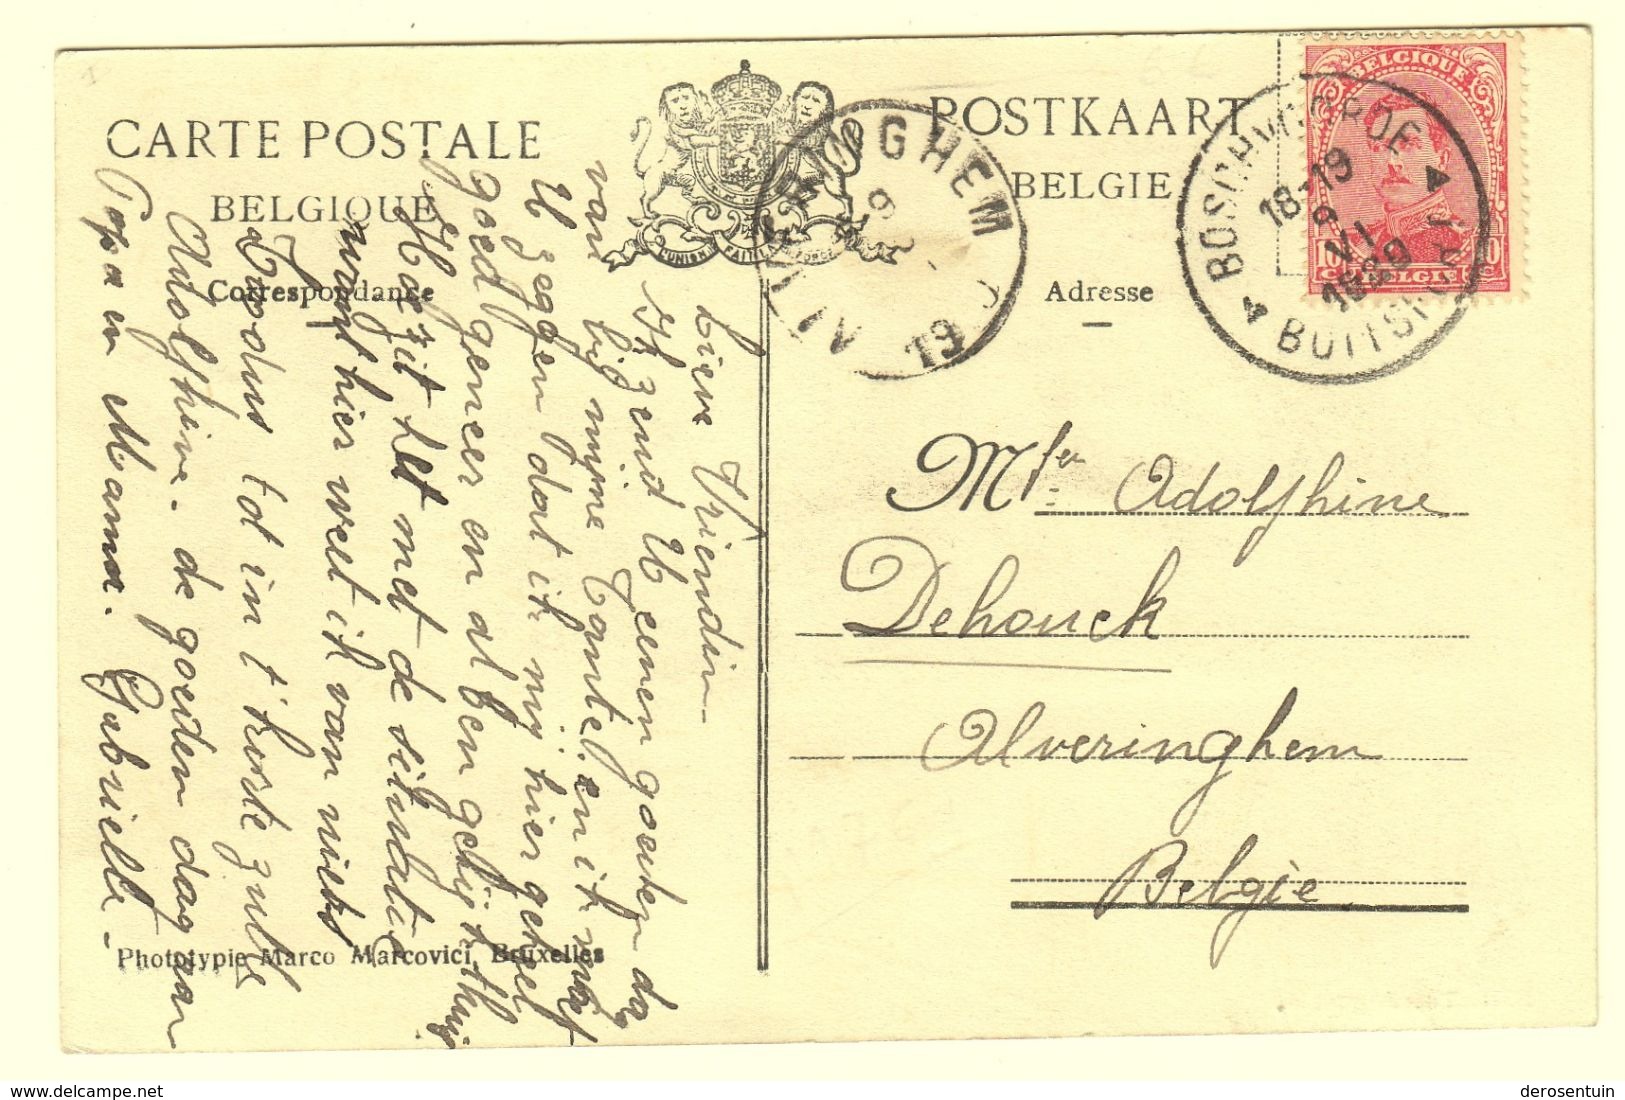 CARTE POSTALE
BELGIQUE
Correspondance
POSTKAART
BELGIE
Adresse
L'UNION FAIT LA FORCE
ALVERINGHEM
9
19
BELGIQUE
10 c BELGIË 10 c
BOSCHVOORDE
18-19
9
VI
1920
BOITSFORT
Lieve Vriendin
Ik zend U eenen goeden dag
van bij mijne Tante. en ik moet
U zeggen dat ik mij hier geheel
goed geneer en al ben gelijk thuis
Hoe zit het met de situatie
want hier weet ik van niets
Tot in t'
Adolphine. de goeden dag aan
Papa en Mama. Gabrielle.
Mlle Adolphine
Dehouck
Alveringhem
Belgie.
Phototypie Marco Marcovici, Bruxelles
derosentuin